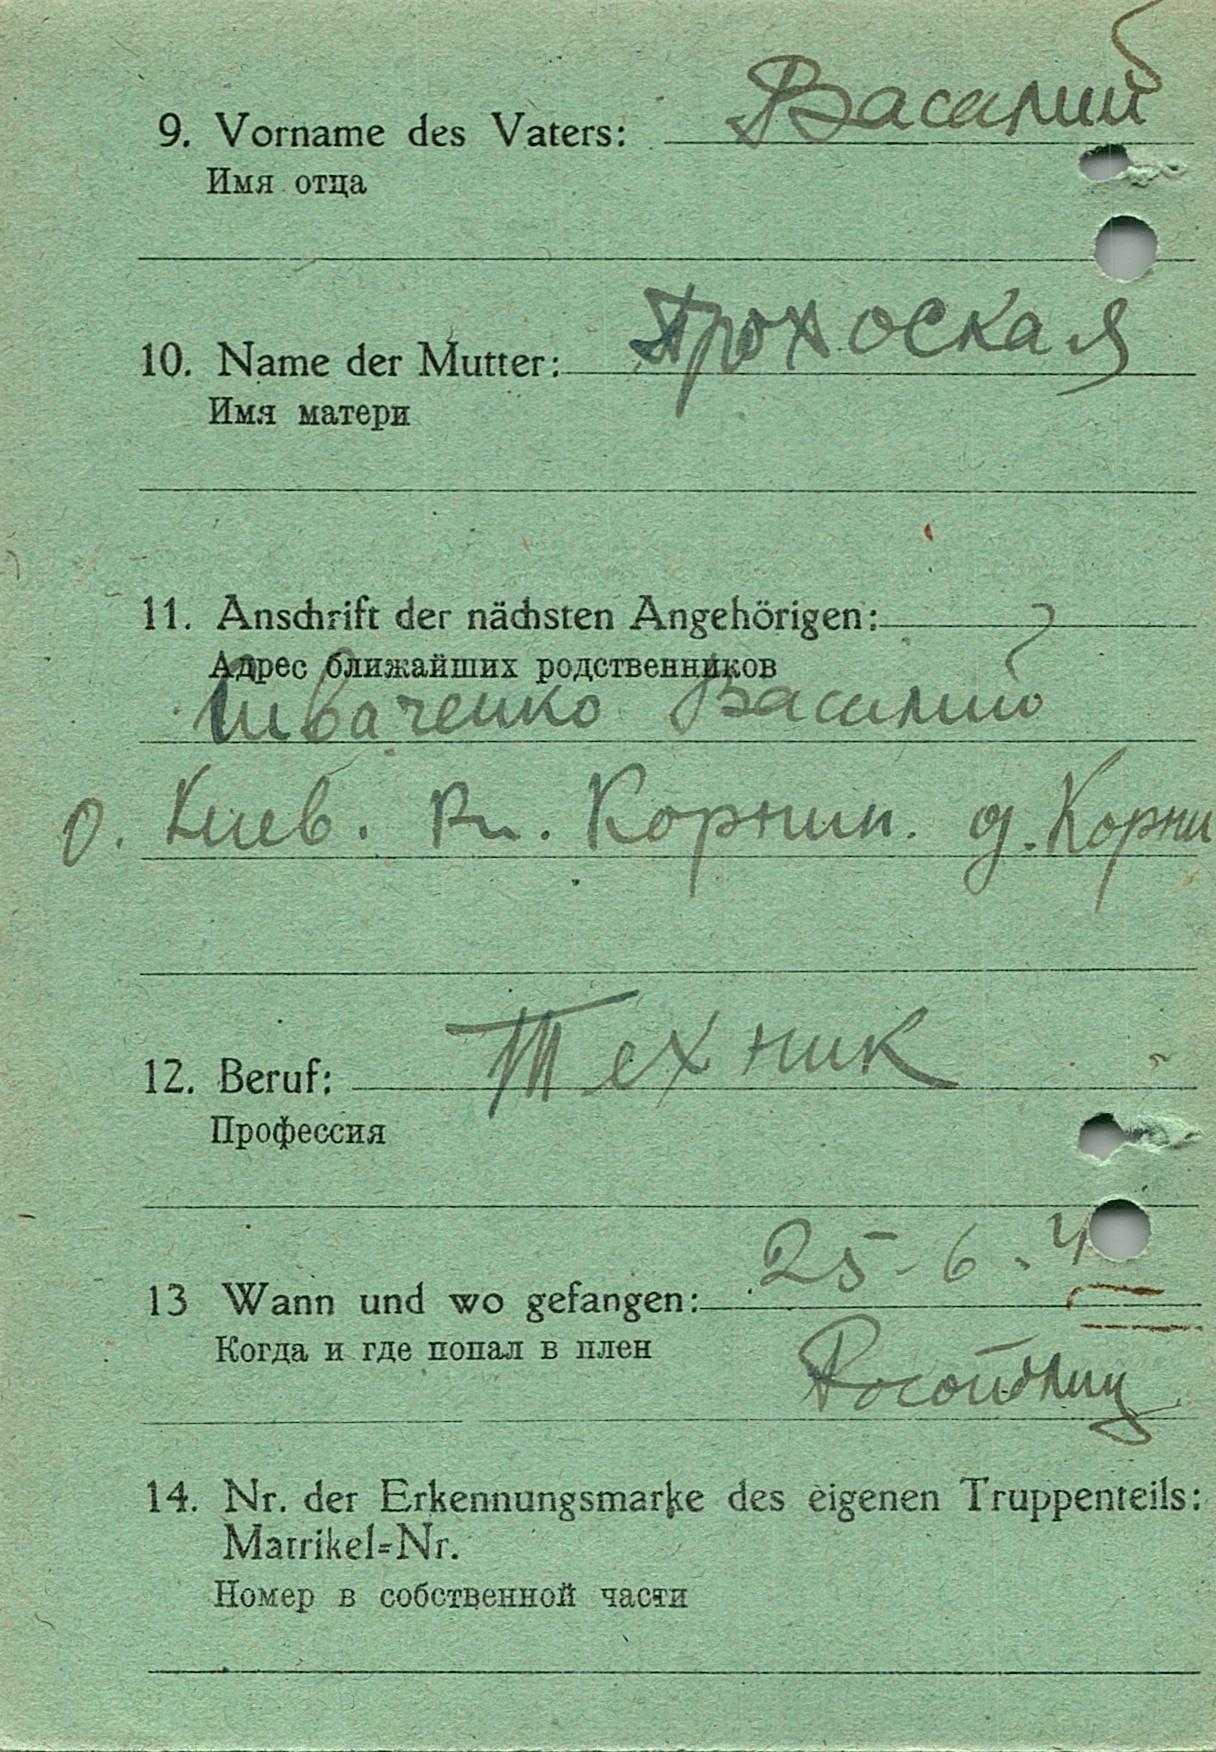 9. Vorname des Vaters: Василий
Имя отца
10. Name der Mutter:
Имя матери
11. Anschrift der nächsten Angehörigen:
Адрес ближайших родственников
Иваченко Василий
о. Киев. Рн. Корнин. д. Корни
12. Beruf: Техник
Профессия
13 Wann und wo gefangen: 25-6.4
Когда и где попал в плен
14. Nr. der Erkennungsmarke des eigenen Truppenteils:
Matrikel=Nr.
Номер в собственной части